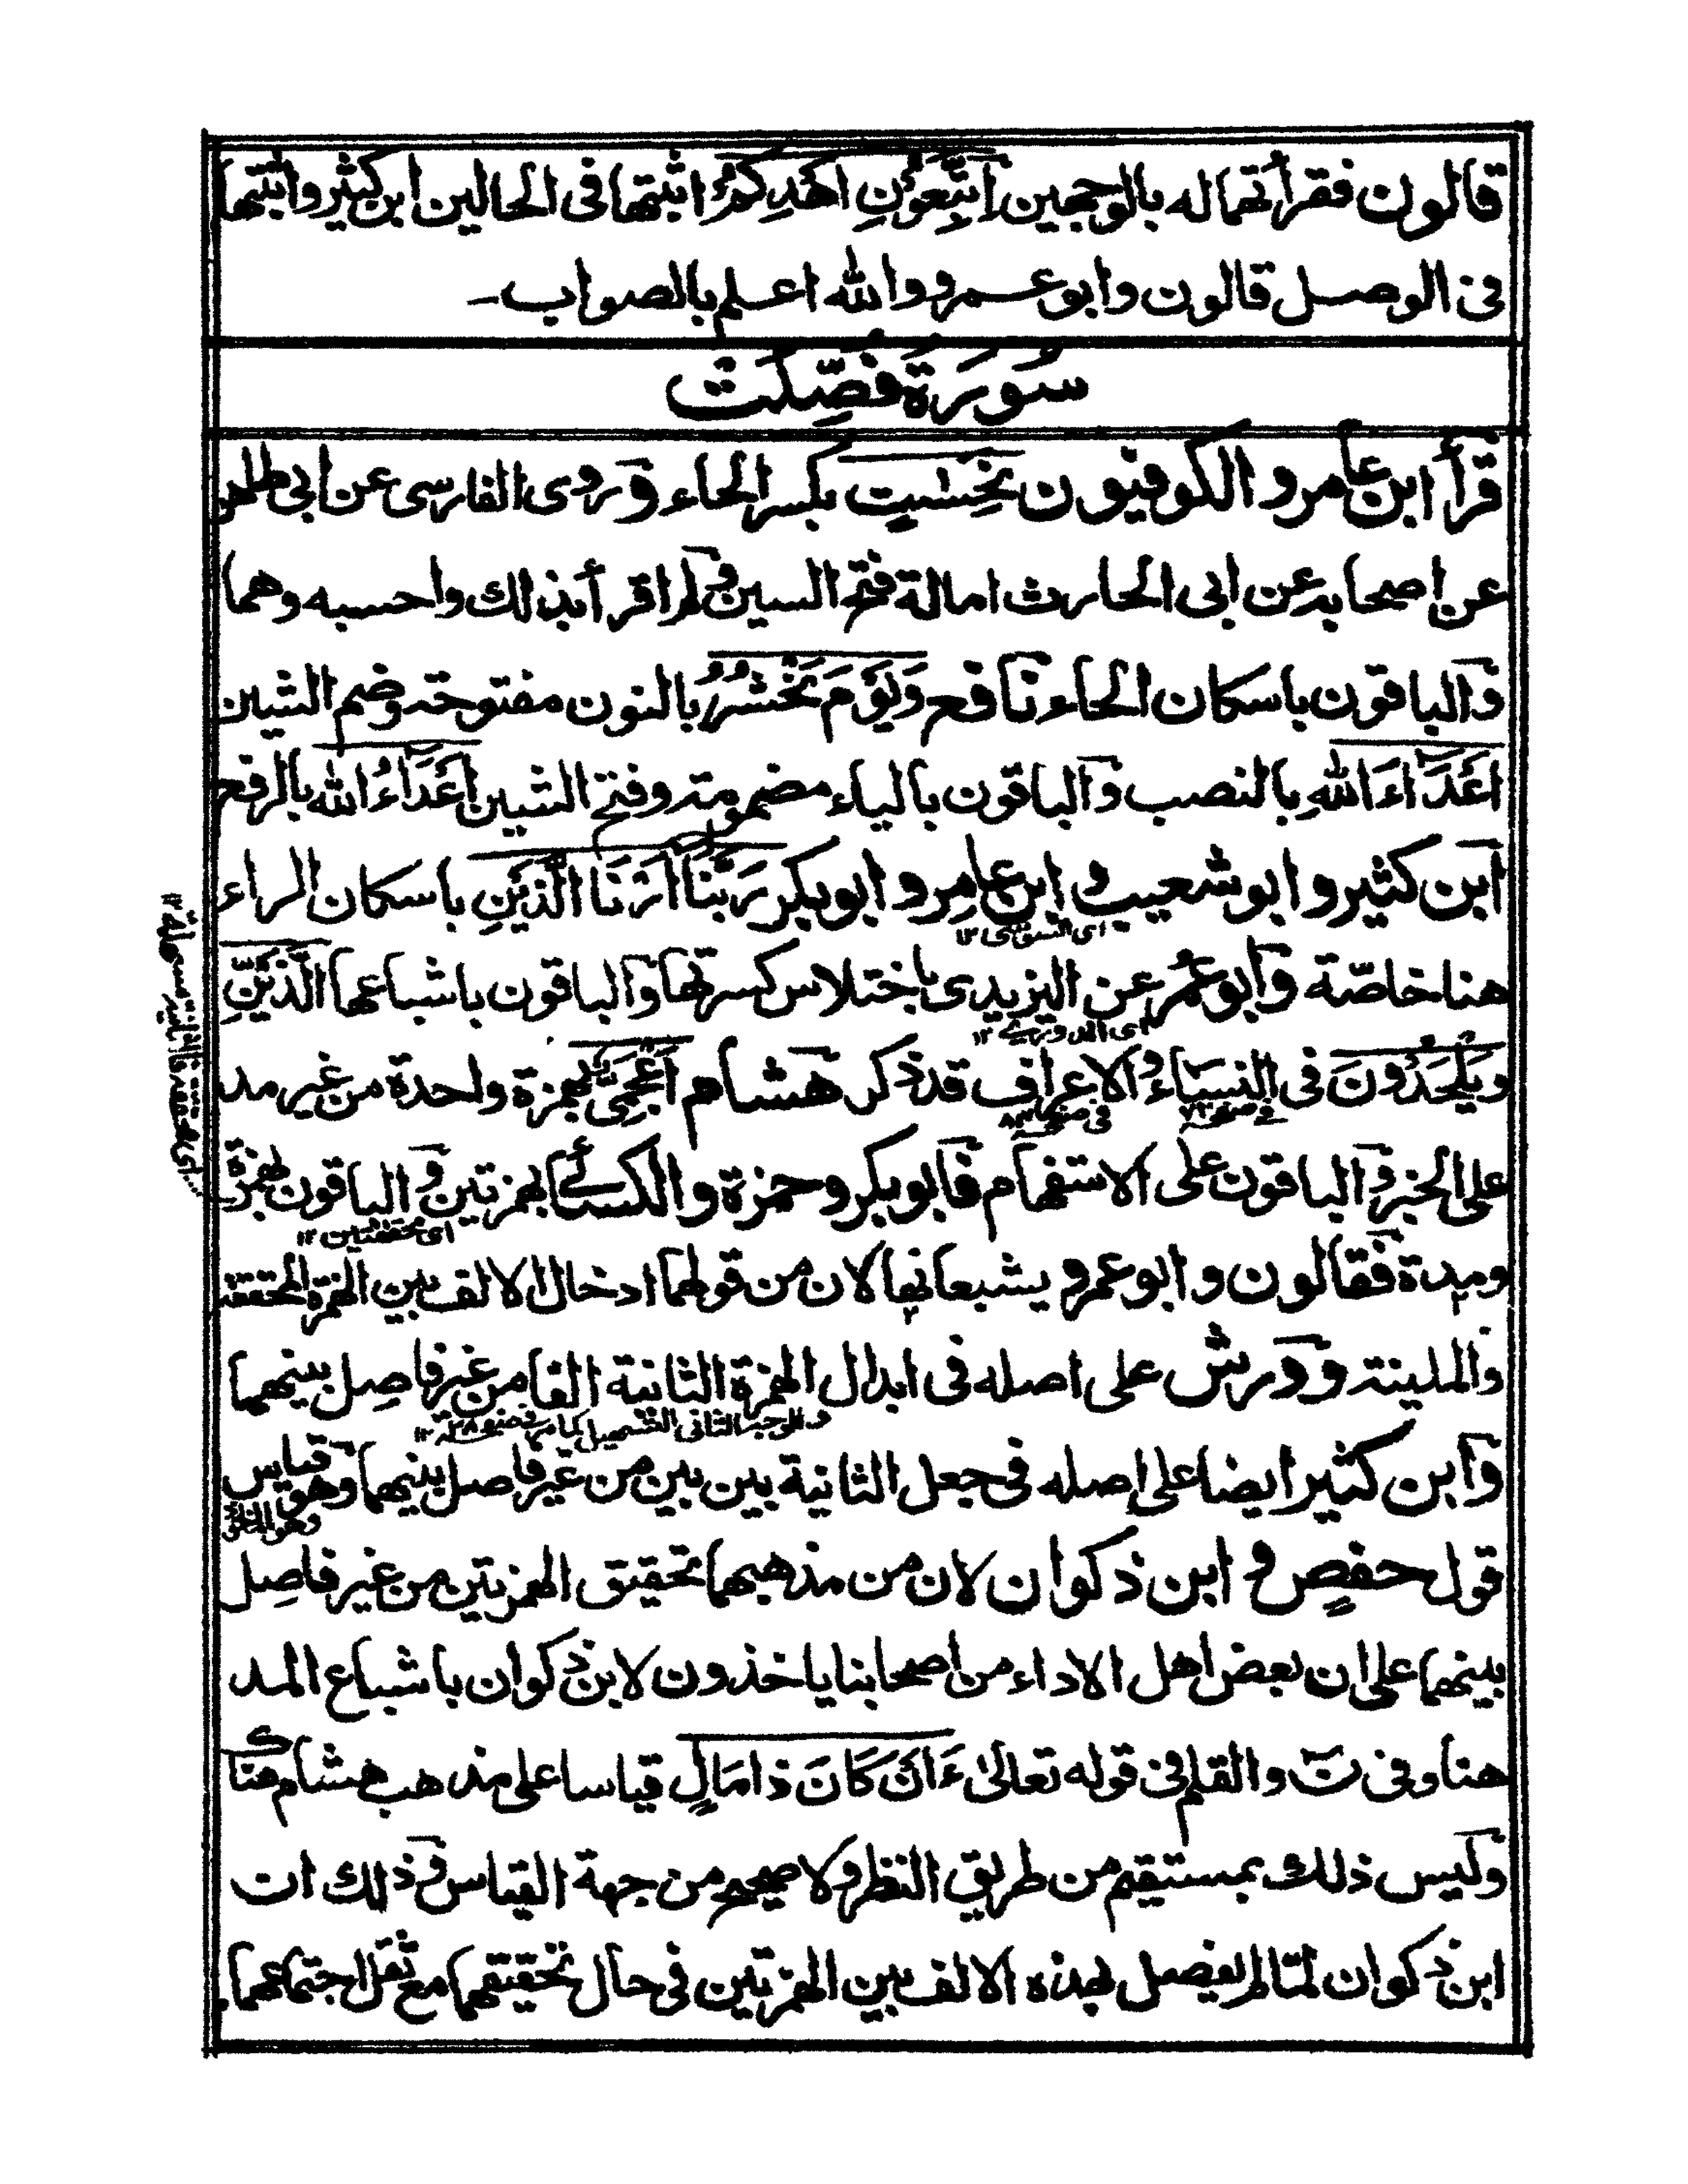 قالون فقرأتهما له بالوجهين اتَّبِعُوْنِ اَهْدِكُمْ اثبتها فى الحالين ابن كثير واثبتها
فى الوصل قالون وابو عمرو والله اعلم بالصواب۔
سُوْرَة فُصِّلَتْ
قرأ ابن عامر و الكوفيون نَحِسَاتٍ بكسر الحاء وروى الفارسى عن ابى طاهر
عن اصحابه عن ابى الحارث امالة فتح السين ولم اقرأ بذلك واحسبه وهما
والباقون باسكان الحاء نافع وَيَوْمَ نَحْشُرُ بالنون مفتوحة وضم الشين
اَعْدَاءَ اللهِ بالنصب والباقون بالياء مضمومة وفتح الشين اَعْدَاءُ الله بالرفع
ابن كثير و ابو شعيب و ابن عامِر و ابو بكر رَبَّنَا اَرْنَا الَّذَيْنِ باسكان الراء
اى السوسى ١٢
هنا خاصّة وابو عمر عن اليزيدى باختلاس كسرتها والباقون باشباعها الَّذَيْنِّ
اى الدورى ١٢
و يَلْحَدُوْنَ فى النساء و الاعراف قد ذكر هشام اَعْجَمِىٌّ بهمزة واحدة من غير مد
فى صفحة ٧٢ فى صفحة ٨٣
على الخبر و الباقون على الاستفهام فابو بكر و حمزة و الكسائے بهمزتين و الباقون بهمزة
اى محققتين ١٢
ومدة فقالون و ابو عمرو يشبعانها لان من قولهما ادخال الالف بين الهمزة المحققة
والملينة و ورش على اصله فى ابدال الهمزة الثانية الفا من غير فاصل بينهما
والوجه الثانى التسهيل كما مر فى صفحة ٢٨ ١٢
وابن كثير ايضا على اصله فى جعل الثانية بين بين من غير فاصل بينهما وهو قياس
قول حفصٍ و ابن ذكوان لان من مذهبهما تحقيق الهمزتين من غير فاصل
بينهما على ان بعض اهل الاداء من اصحابنا ياخذون لابن ذكوان باشباع المد
هنا وفى نٓ والقلم فى قوله تعالىٰ ءَاَنْ كَانَ ذَا مَالٍ قياسا على مذهب هشام هناك
وليس ذلك بمستقيم من طريق النظر ولا صحيح من جهة القياس و ذلك ان
ابن ذكوان لمّا لم يفصل بهذه الالف بين الهمزتين فى حال تحقيقهما مع ثقل اجتماعهما